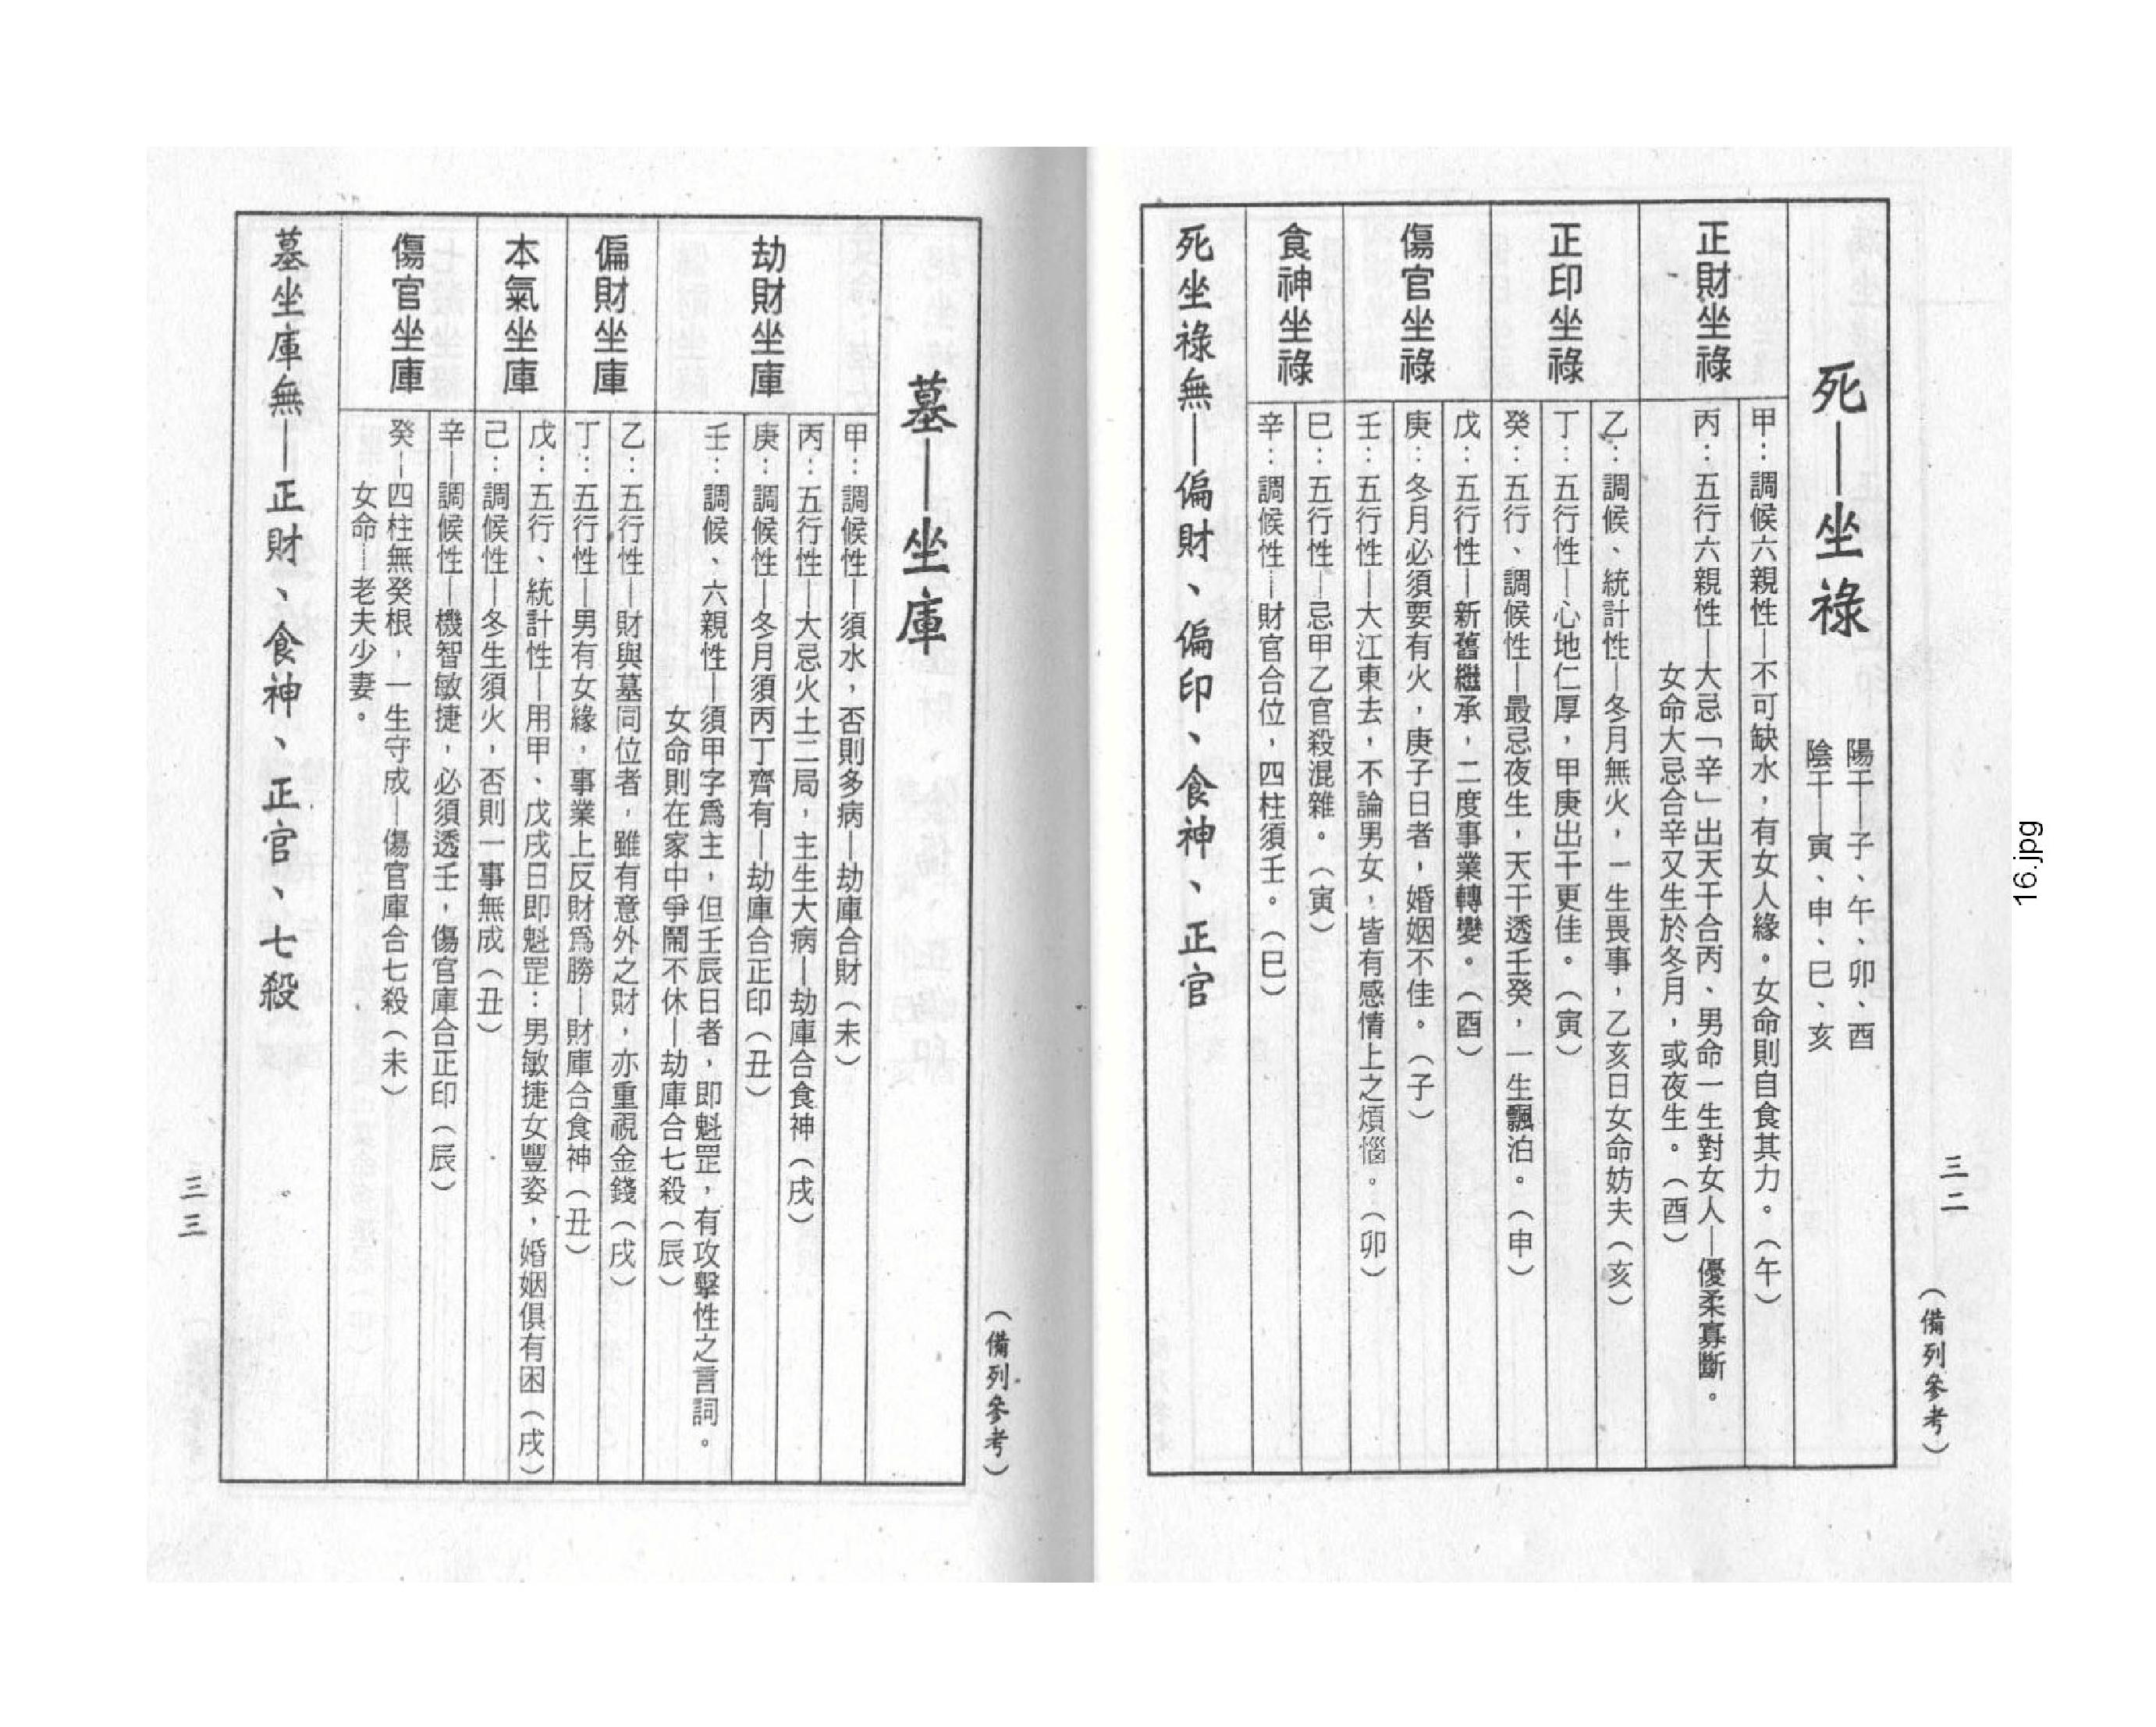 三二
（備列參考）
死—坐祿
陽干—子、午、卯、酉
陰干—寅、申、巳、亥
正財坐祿
甲：調候六親性—不可缺水，有女人緣。女命則自食其力。（午）
丙：五行六親性—大忌「辛」出天干合丙、男命一生對女人—優柔寡斷。
女命大忌合辛又生於冬月，或夜生。（酉）
正印坐祿
乙：調候、統計性—冬月無火，一生畏事，乙亥日女命妨夫（亥）
丁：五行性—心地仁厚，甲庚出干更佳。（寅）
癸：五行、調候性—最忌夜生，天干透壬癸，一生飄泊。（申）
傷官坐祿
戊：五行性—新舊繼承，二度事業轉變。（酉）
庚：冬月必須要有火，庚子日者，婚姻不佳。（子）
壬：五行性—大江東去，不論男女，皆有感情上之煩惱。（卯）
食神坐祿
巳：五行性—忌甲乙官殺混雜。（寅）
辛：調候性—財官合位，四柱須壬。（巳）
死坐祿無—偏財、偏印、食神、正官
（備列參考）
墓—坐庫
劫財坐庫
甲：調候性—須水，否則多病—劫庫合財（未）
丙：五行性—大忌火土二局，主生大病—劫庫合食神（戌）
庚：調候性—冬月須丙丁齊有—劫庫合正印（丑）
壬：調候、六親性—須甲字爲主，但壬辰日者，即魁罡，有攻擊性之言詞。
女命則在家中爭鬧不休—劫庫合七殺（辰）
偏財坐庫
乙：五行性—財與墓同位者，雖有意外之財，亦重視金錢（戌）
丁：五行性—男有女緣，事業上反財爲勝—財庫合食神（丑）
本氣坐庫
戊：五行、統計性—用甲、戊戌日即魁罡：男敏捷女豐姿，婚姻俱有困（戌）
己：調候性—冬生須火，否則一事無成（丑）
傷官坐庫
辛—調候性—機智敏捷，必須透壬，傷官庫合正印（辰）
癸—四柱無癸根，一生守成—傷官庫合七殺（未）
女命—老夫少妻。
墓坐庫無—正財、食神、正官、七殺
三三
16.jpg